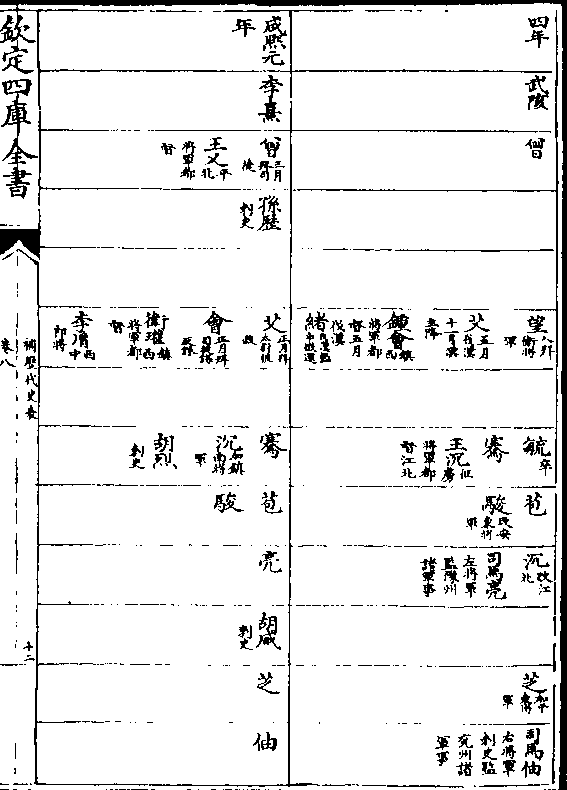 四年
武陔
曾
望 八月拜衛將軍
艾 五月伐漢十一月漢主降
鍾會 鎮西將軍都督五月伐漢
緒
毓 卒
騫
王沉 征虜將軍都督江北
苞
駿 改安東將軍
沉 改江北
司馬亮 左將軍監豫州諸軍事
芝 加平東將軍
司馬伷 右將軍刺史監兗州諸軍事
咸熙元年
李熹
曾 三月拜司徒
王乂 平北將軍都督
孫歷 刺史
艾 正月拜太尉
會 正月拜司徒
衛瓘 鎮西將軍都督
李 西中郎將
騫
沉 鎮南將軍
胡烈 刺史
苞
駿
亮
胡威 刺史
芝
伷
欽定四庫全書
補歷代史表
卷八
十二